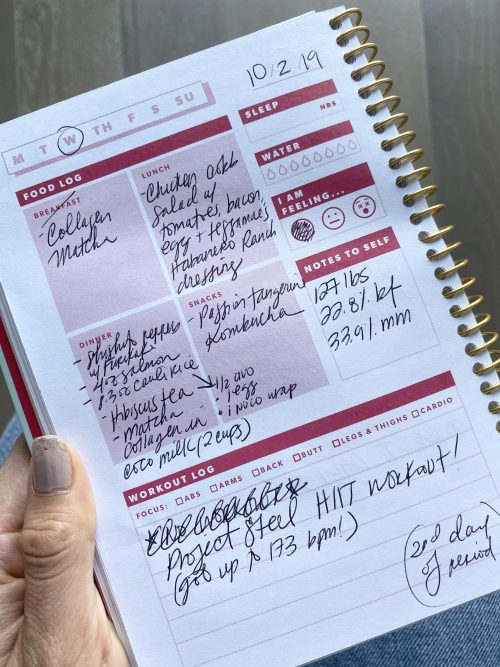 10/2/19
M T W TH F S SU
SLEEP
HRS
WATER
I AM
FEELING...
NOTES TO SELF
127 lbs
22.8% bf
33.9% mm
FOOD LOG
BREAKFAST
- Collagen
Matcha
LUNCH
- Chicken cobb
salad w/
tomatoes, bacon,
egg + Tessamae's
Habanero Ranch
dressing
DINNER
- shishito peppers
w/ furikake
- 4oz salmon
- 8.3oz caulirice
- Hibiscus tea
- Matcha
collagen in
coco milk (2 cups)
SNACKS
- Passion tangerine
Kombucha
• 1/2 avo
• 1 egg
• 1 NUCO wrap
WORKOUT LOG
FOCUS: ABS ARMS BACK BUTT LEGS & THIGHS CARDIO
Project Steel HIIT workout!
(got up to 173 bpm!)
(2nd day
of period)